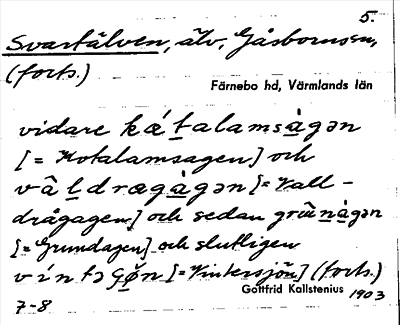 5.
Svartälven, älv, Gåsbornssn,
(forts.)
Färnebo hd, Värmlands län
vidare kǽtalamsàgən
[= Kotalamsagen] och
vâldrægàgən [= Vall-
drågagen] och sedan grûnàgən
[= Grundagen] och slutligen
víntəʂǿn [= Vintersjön] (forts.)
Gottfrid Kallstenius
7-8 1903